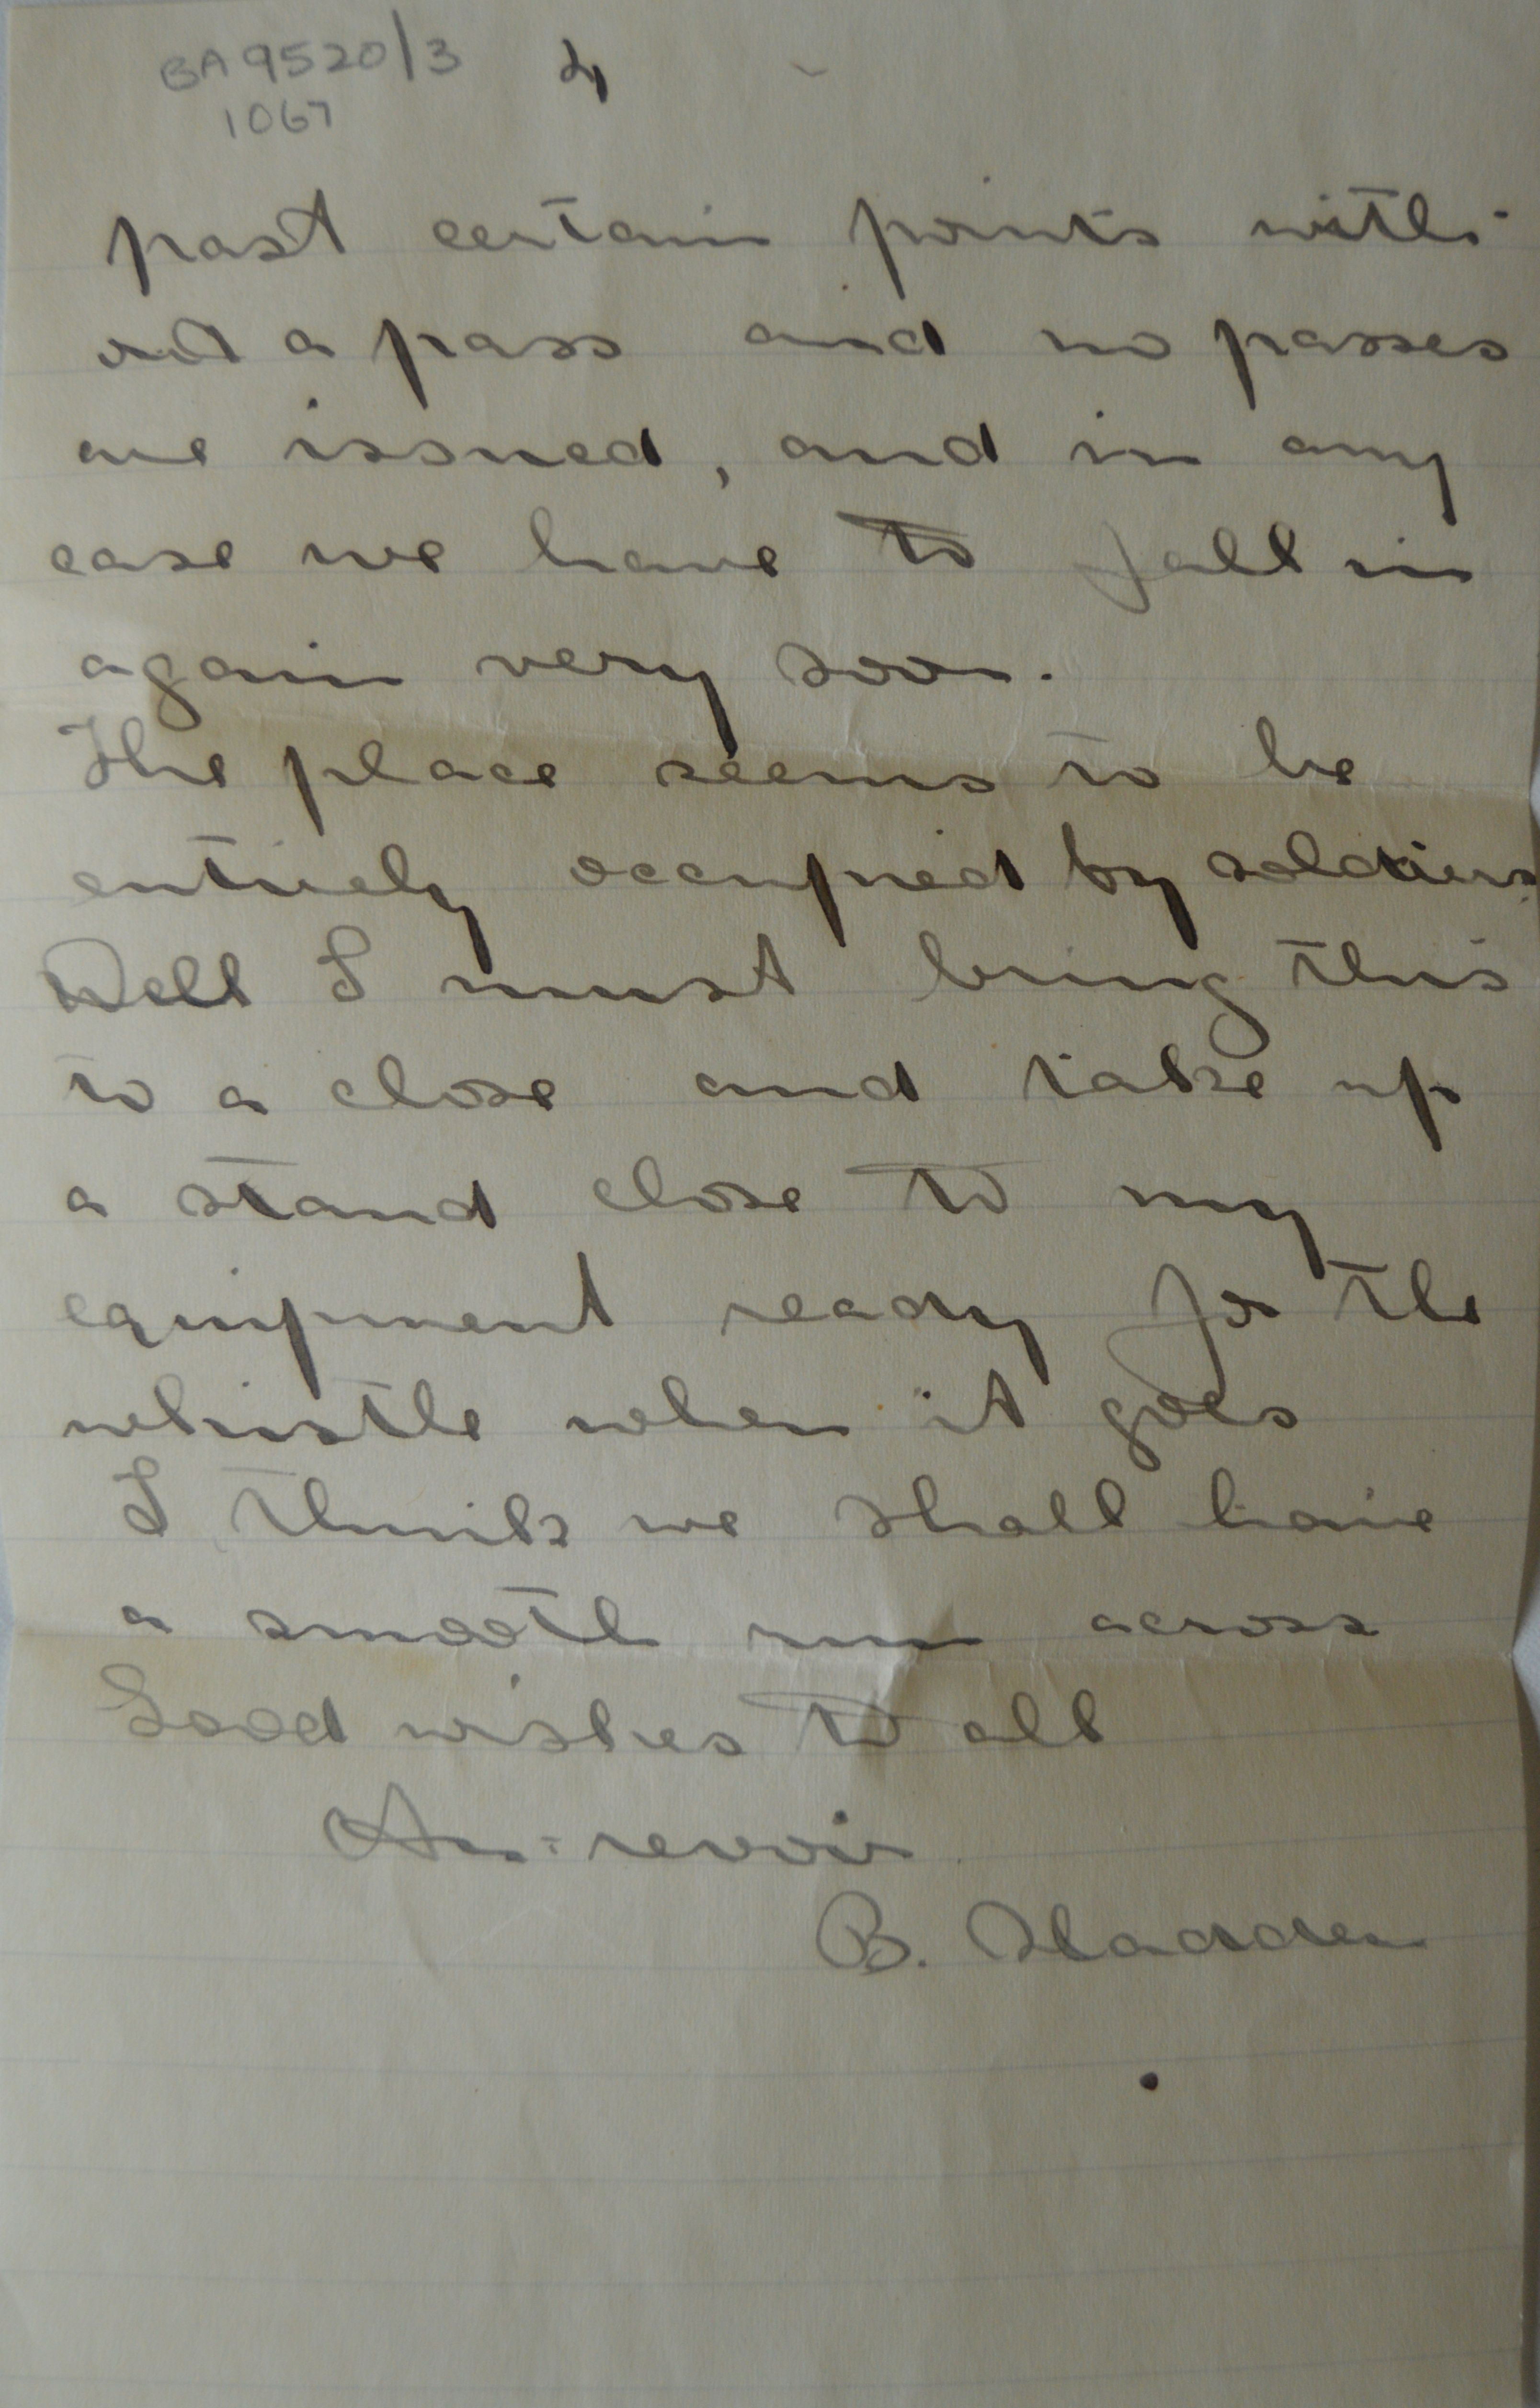 BA 9520/3 4
1067
past certain points with-
out a pass and no passes
are issued, and in any
case we have to fall in
again very soon.
The place seems to be
entirely occupied by soldiers.
Well I must bring this
to a close and take up
a stand close to my
equipment ready for the
whistle when it goes
I think we shall have
a smooth run across
Good wishes to all
Au-revoir
B. Sladden